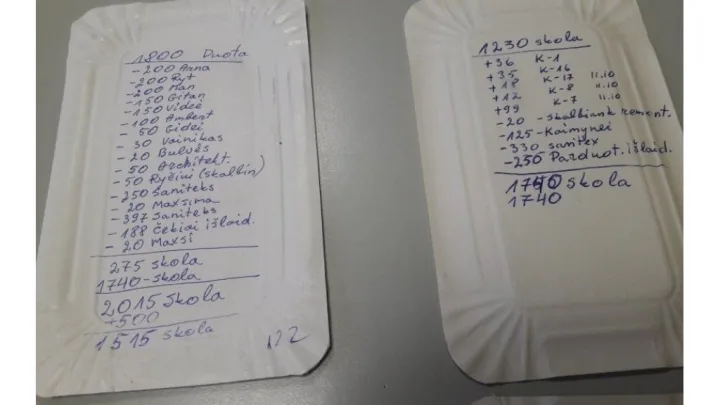 1800 Duota
-200 Anna
-200 Ryt
-200 Man
-150 Gitan
-150 Videi
-100 Ambert
- 50 Gidei
- 30 Vainikas
- 20 Bulvės
- 50 Architekt.
- 50 Ryčiui (skalbin)
-250 Saniteks
- 20 Maxsima
-397 Saniteks
-188 Čekiai išlaid.
- 20 Maxsi
275 skola
1740-skola
2015 skola
+500
1515 skola
1230 skola
+36 K-1
+35 K-16
+18 K-17 11.10
+12 K-8 11.10
+99 K-7 11.10
-20 -skalbiank remont.
-125-Kaimynei
-330 sanitex
-250 Parduot. išlaid.
1740 skola
1740